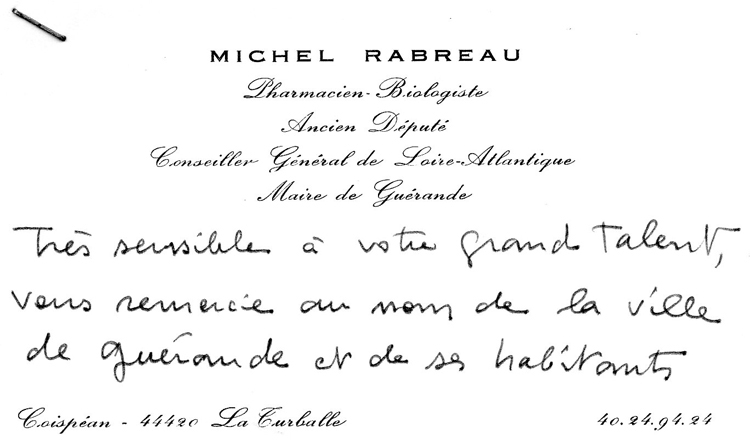 MICHEL RABREAU
Pharmacien-Biologiste
Ancien Député
Conseiller Général de Loire-Atlantique
Maire de Guérande
Très sensible à votre grand talent,
vous remercie au nom de la ville
de Guérande et de ses habitants
Coispéan - 44420 La Turballe 40.24.94.24